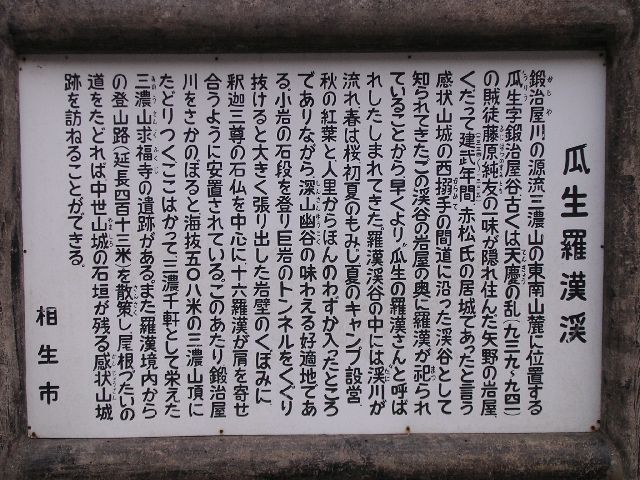 瓜生羅漢渓
鍛治屋川の源流三濃山の東南山麓に位置する
瓜生字鍛治屋谷、古くは天慶の乱(九三九〜九四一)
の賊徒藤原純友の一味が隠れ住んだ矢野の岩屋、
くだって建武年間、赤松氏の居城であったと言う
感状山城の西搦手の間道に沿った渓谷として
知られてきた。この渓谷の岩屋の奥に羅漢が祀られ
ていることから早くより“瓜生の羅漢さん”と呼ば
れしたしまれてきた。羅漢渓谷の中には渓川が
流れ、春は桜、初夏のもみじ、夏のキャンプ設営、
秋の紅葉と人里からほんのわずか入ったところ
でありながら深山幽谷の味わえる好適地であ
る。小岩の石段を登り巨岩のトンネルをくぐり
抜けると大きく張り出した岩壁のくぼみに
釈迦三尊の石仏を中心に十六羅漢が肩を寄せ
合うように安置されている。このあたり鍛治屋
川をさかのぼると海抜五〇八米の三濃山頂に
たどりつく。ここはかつて三濃千軒として栄えた
三濃山求福寺の遺跡がある。また羅漢境内から
の登山路(延長四百十三米)を散策し、尾根づたいの
道をたどれば中世山城の石垣が残る感状山城
跡を訪ねることができる。
相生市